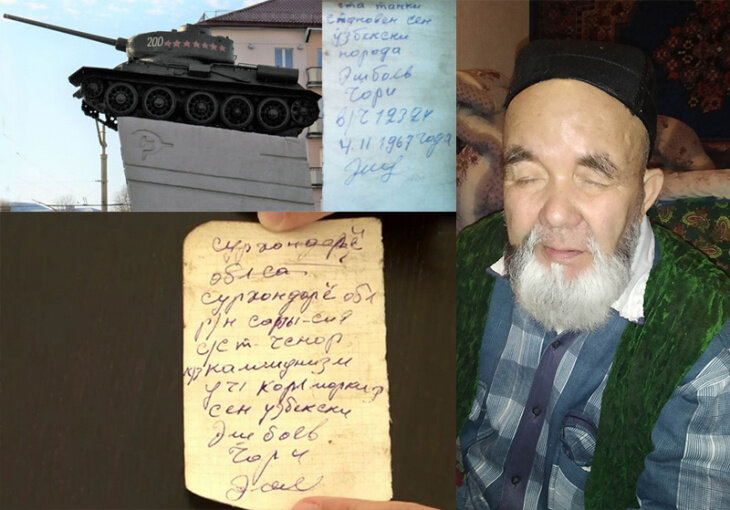 200
эта танки
становен сен
узбекски
народа
Эшбоев
Чори
в/ч 12324
4.11 1967 года
сурхондарё
обл са
сурхондарё обл
р/н сары-сия
с/ст ченор
к/з коммунизм
уч1
сен узбекски
Эшбоев
Чори